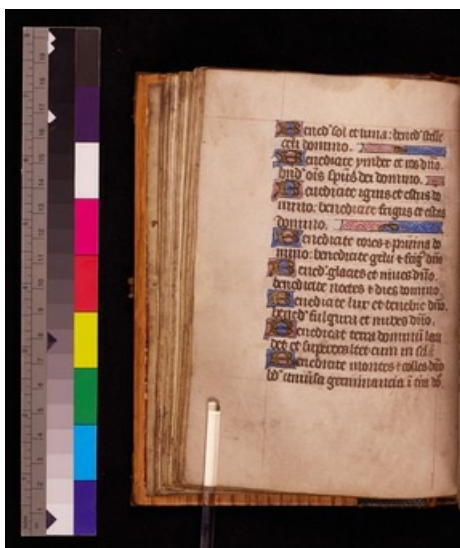 Bened' sol et luna: bened' stelle
celi domino.
Benedicite ymber et ros dno.
bnd' oīs spūs dei domino.
Benedicite ignis et estus do
mino: benedicite frigus et estas
domino.
Benedicite rores & pruina do
mino: benedicite gelu & frig' dno.
Bened' glacies et niues dno.
benedicite noctes & dies domino.
Benedicite lux et tenebre dno.
bened' fulgura et nubes dno.
Benedicat terra dominū lau
det et superexaltet eum in
Benedicite montes & colles dno
germinancia ī